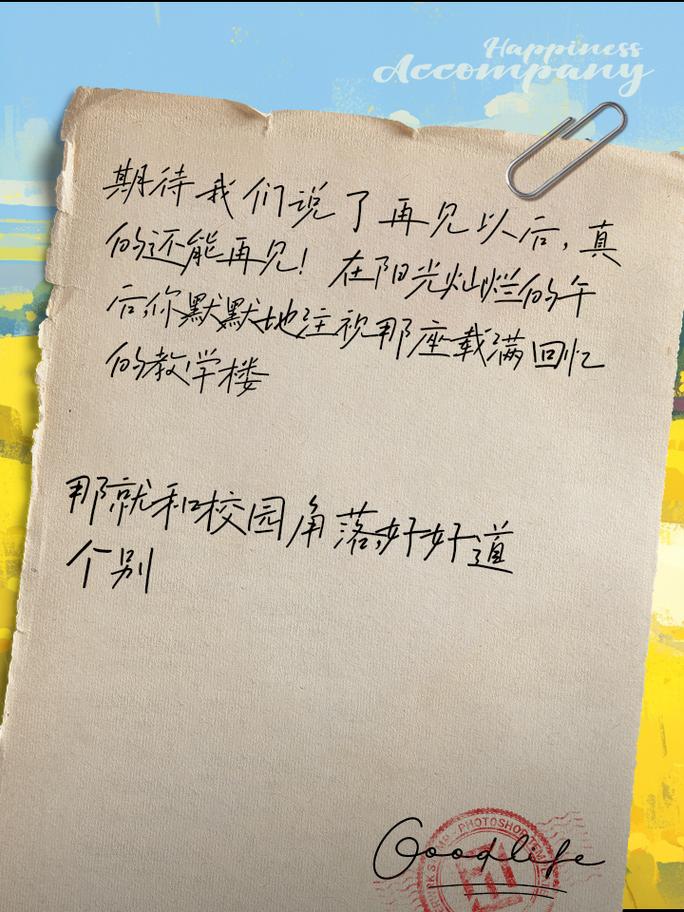 Happiness
Accompany
期待我们说了再见以后，真
的还能再见！在阳光灿烂的午
后，你默默地注视那座载满回忆
的教学楼
那就和校园角落，好好道
个别
PHOTOSHOP
Goodlife